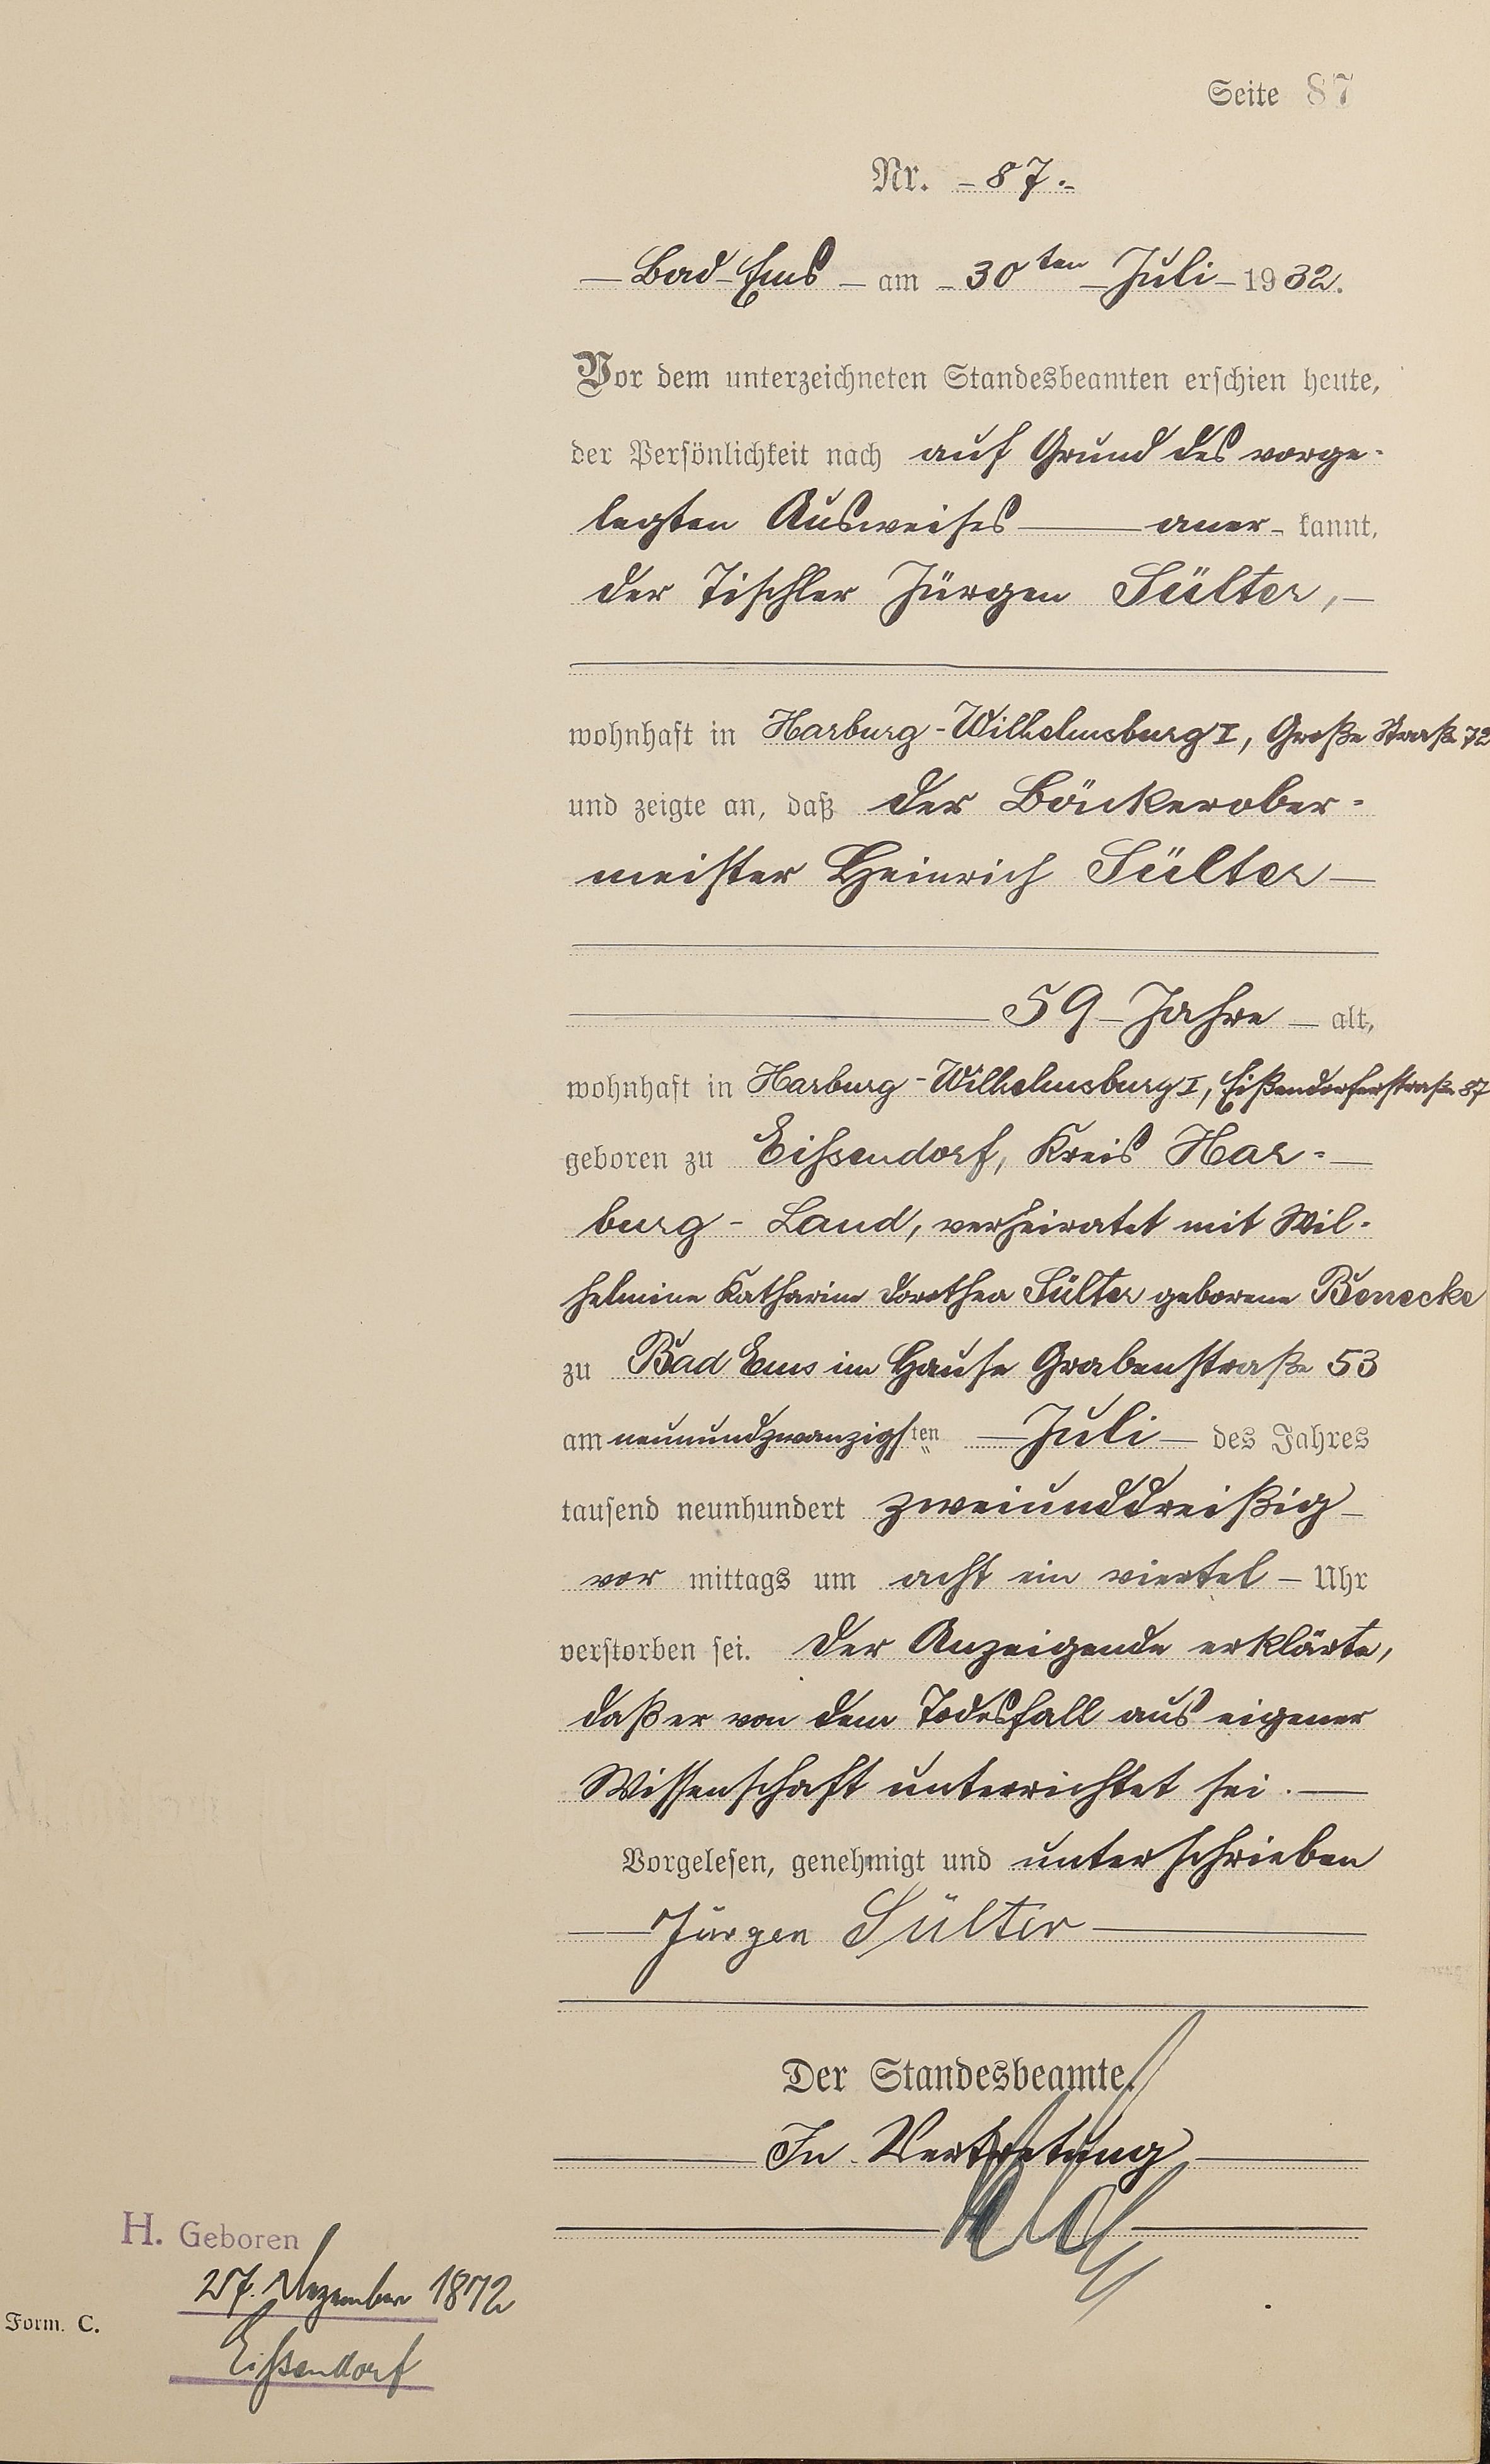 Seite 87
Nr. - 87.-
— Bad-Ems — am - 30ten - Juli - 1932.
Vor dem unterzeichneten Standesbeamten erschien heute,
der Persönlichkeit nach auf Grund des vorge-
legten Ausweises —— aner- kannt,
der Tischler Jürgen Sülter, —
wohnhaft in Harburg-Wilhelmsburg I, Große Straße 72
und zeigte an, daß der Bäckerober-
meister Heinrich Sülter —
59 - Jahre — alt,
wohnhaft in Harburg-Wilhelmsburg I, Eißendorferstraße 87
geboren zu Eißendorf, Kreis Har- —
burg - Land, verheiratet mit Wil-
helmine Katharine Dorothea Sülter geborene Benecke
zu Bad Ems im Hause Grabenstraße 53
am neunundzwanzigsten — Juli — des Jahres
tausend neunhundert zweiunddreißig —
vor mittags um acht ein viertel — Uhr
verstorben sei. Der Anzeigende erklärte,
daß er von dem Todesfall aus eigener
Wissenschaft unterrichtet sei. —
Vorgelesen, genehmigt und unterschrieben
— Jürgen Sülter —
Der Standesbeamte.
In Vertretung
H. Geboren
27. Dezember 1872
Eißendorf
Form. C.